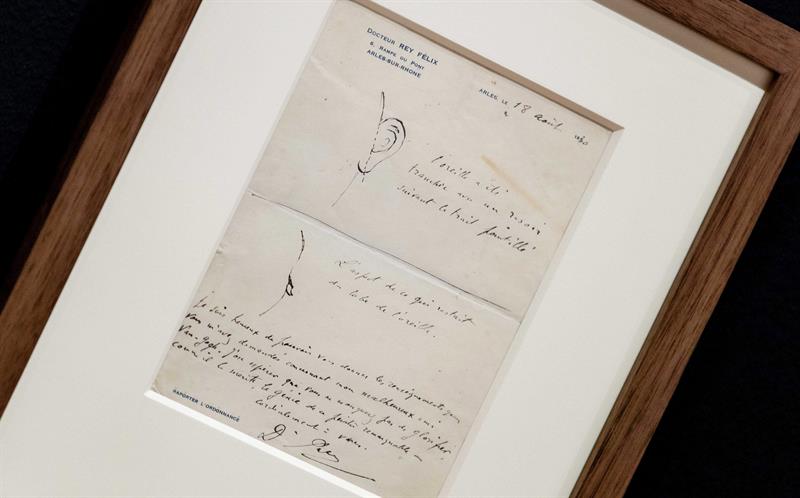 DOCTEUR REY FÉLIX
6, RAMPE DU PONT
ARLES-SUR-RHONE
ARLES, LE 18 août 1930
L'oreille a été
tranchée avec un rasoir
suivant le trait pointillé
L'aspect de ce qui restait
du lobe de l'oreille.
Je suis heureux de pouvoir vous donner les renseignements que
vous m'avez demandés concernant mon malheureux ami
Van-Gogh. J'ose espérer que vous ne manquerez pas de glorifier
comme il le mérite, le génie de ce peintre remarquable
Cordialement à vous.
Dr Rey
RAPORTER L'ORDONNANCE